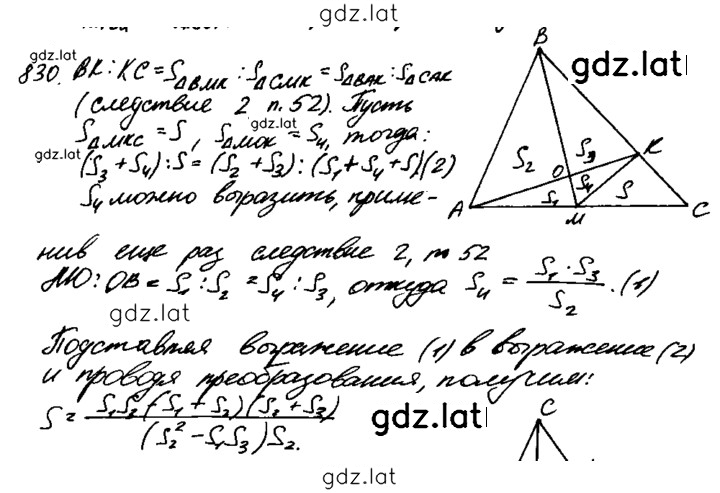 gdz.lat
gdz.lat
830. BK : KC = S△BMK : S△CMK = S△BAK : S△CAK
gdz.lat
(следствие 2 п. 52). Пусть
S△MKC = S, S△MOK = S₄, тогда:
gdz.lat
gdz.lat
(S₃ + S₄) : S = (S₂ + S₃) : (S₁ + S₄ + S) (2)
S₄ можно выразить, приме-
B
S₂ S₃ K
O S₄ S
A S₁ M C
нив еще раз следствие 2, п 52
MO : OB = S₁ : S₂ = S₄ : S₃, откуда S₄ = S₁ · S₃ / S₂ . (1)
gdz.lat
Подставляя выражение (1) в выражение (2)
и проводя преобразования, получим:
S = S₁S₃(S₁ + S₂)(S₂ + S₃) / (S₂² - S₁S₃)S₂.
gdz.lat
C
gdz.lat